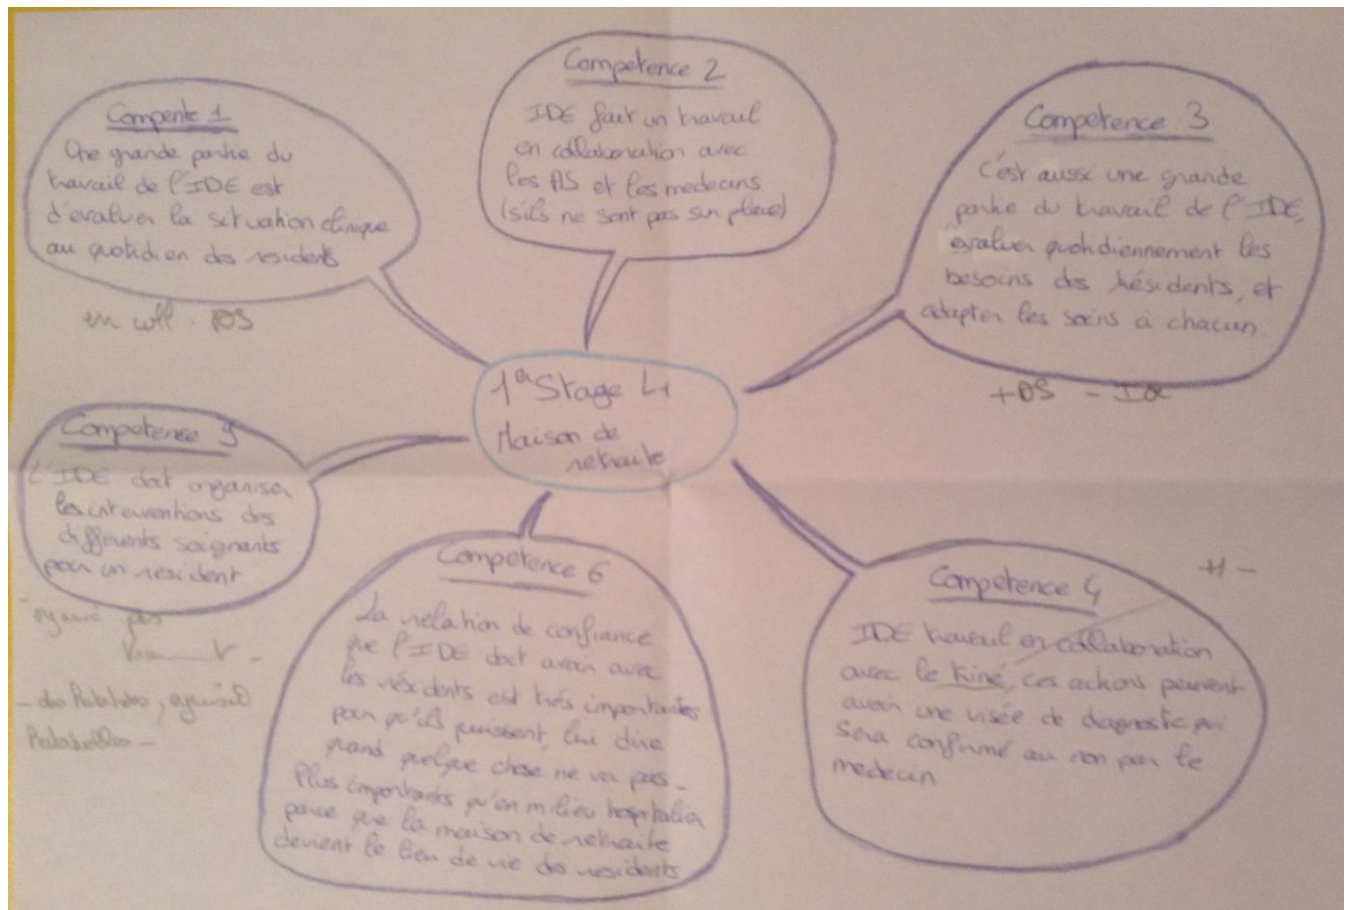 Compente 1
Une grande partie du
travail de l'IDE est
d'evaluer la situation clinique
au quotidien des residents
en coll. AS
Competence 2
IDE fait un travail
en collaboration avec
les AS et les medecins
(s'ils ne sont pas sur place)
Competence 3
C'est aussi une grande
partie du travail de l'IDE,
evaluer quotidiennement les
besoins des résidents, et
adapter les soins à chacun.
+AS -
1er Stage
Maison de
retraite
Competence 5
L'IDE doit organiser
les interventions des
différents soignants
pour un resident
Competence 6
La relation de confiance
que l'IDE doit avoir avec
les résidents est très importantes
pour qu'ils puissent, lui dire
quand quelque chose ne va pas.
Plus importants qu'en milieu hospitalier
parce que la maison de retraite
devient le lieu de vie des residents
Competence 4
IDE travail en collaboration
avec le Kiné, ces actions peuvent
avoir une visée de diagnostic qui
sera confirmé ou non par le
medecin